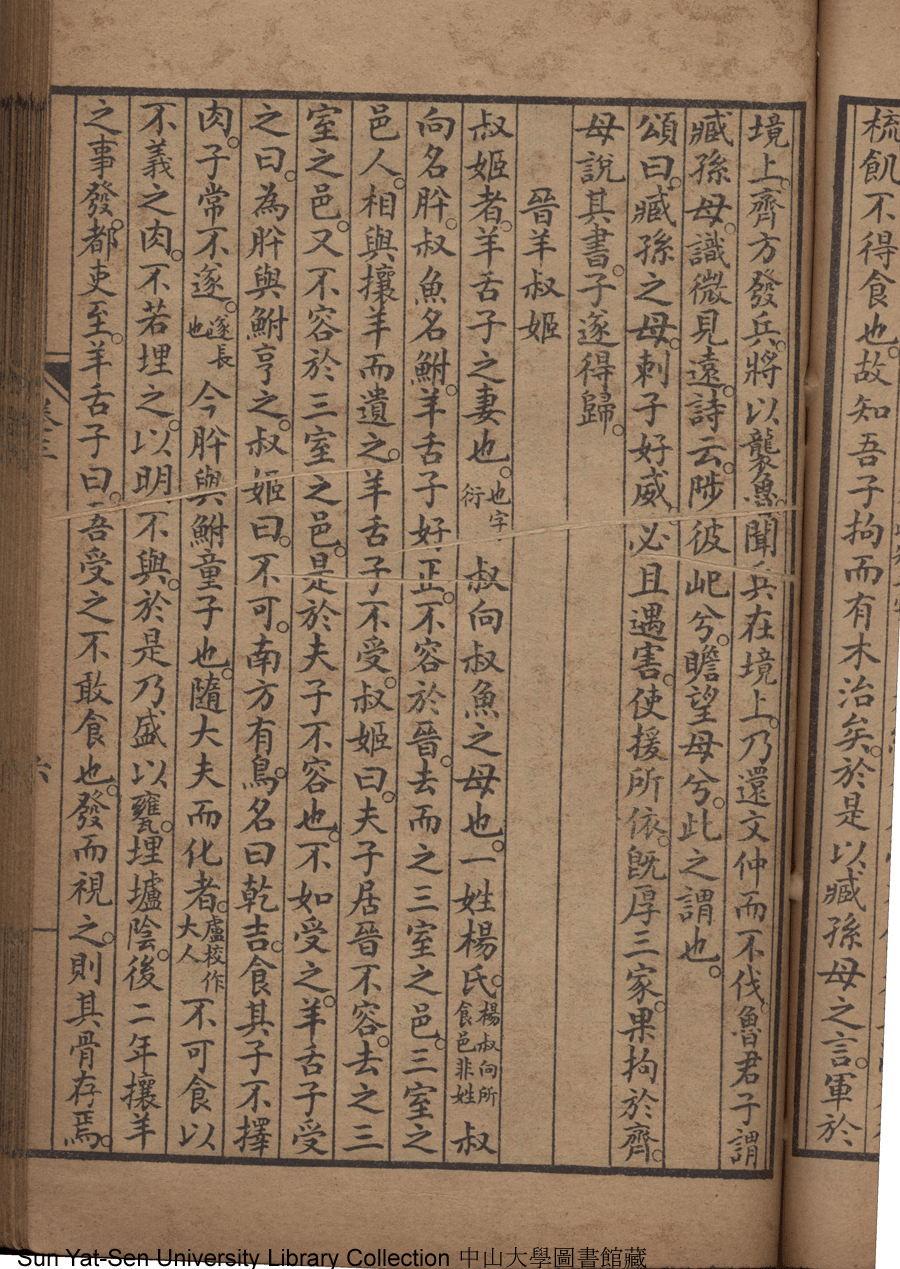 梳飢不得食也。故知吾子拘而有木治矣。於是以臧孫母之言。軍於
境上。齊方發兵。將以襲魯。聞兵在境上。乃還文仲而不伐魯。君子謂
臧孫母。識微見遠。詩云。陟彼屺兮。瞻望母兮。此之謂也。
頌曰。臧孫之母。刺子好威。必且遇害。使援所依。既厚三家。果拘於齊。
母說其書。子遂得歸。
晉羊叔姬
叔姬者。羊舌子之妻也。也字衍叔向叔魚之母也。一姓楊氏。楊叔向所食邑非姓叔
向名肸。叔魚名鮒。羊舌子好正。不容於晉。去而之三室之邑。三室之
邑人。相與攘羊而遺之。羊舌子不受。叔姬曰。夫子居晉不容。去之三
室之邑。又不容於三室之邑。是於夫子不容也。不如受之。羊舌子受
之曰。為肸與鮒亨之。叔姬曰。不可。南方有鳥。名曰乾吉。食其子不擇
肉。子常不遂。遂長也今肸與鮒童子也。隨大夫而化者。盧校作大人不可食以
不義之肉。不若埋之。以明不與。於是乃盛以甕。埋壚陰。後二年攘羊
之事發。都吏至。羊舌子曰。吾受之不敢食也。發而視之。則其骨存焉。
卷三
六
Sun Yat-Sen University Library Collection 中山大學圖書館藏